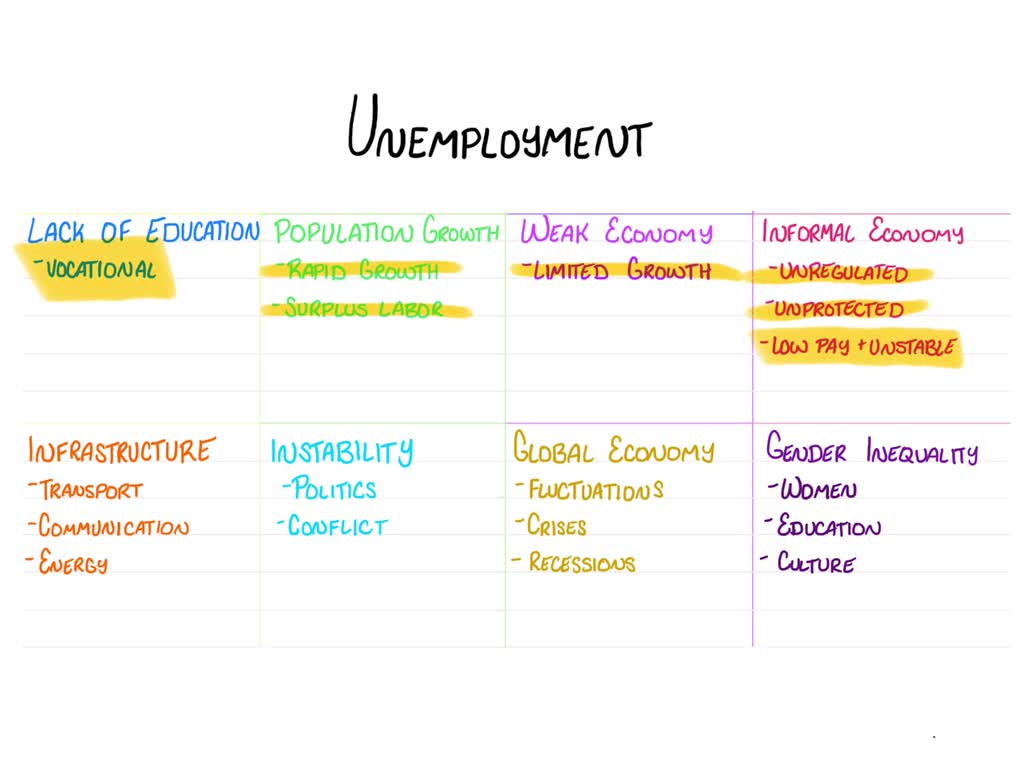 UNEMPLOYMENT
LACK OF EDUCATION
-VOCATIONAL
POPULATION GROWTH
-RAPID GROWTH
-SURPLUS LABOR
WEAK ECONOMY
-LIMITED GROWTH
INFORMAL ECONOMY
-UNREGULATED
-UNPROTECTED
-LOW PAY + UNSTABLE
INFRASTRUCTURE
-TRANSPORT
-COMMUNICATION
-ENERGY
INSTABILITY
-POLITICS
-CONFLICT
GLOBAL ECONOMY
-FLUCTUATIONS
-CRISES
-RECESSIONS
GENDER INEQUALITY
-WOMEN
-EDUCATION
-CULTURE